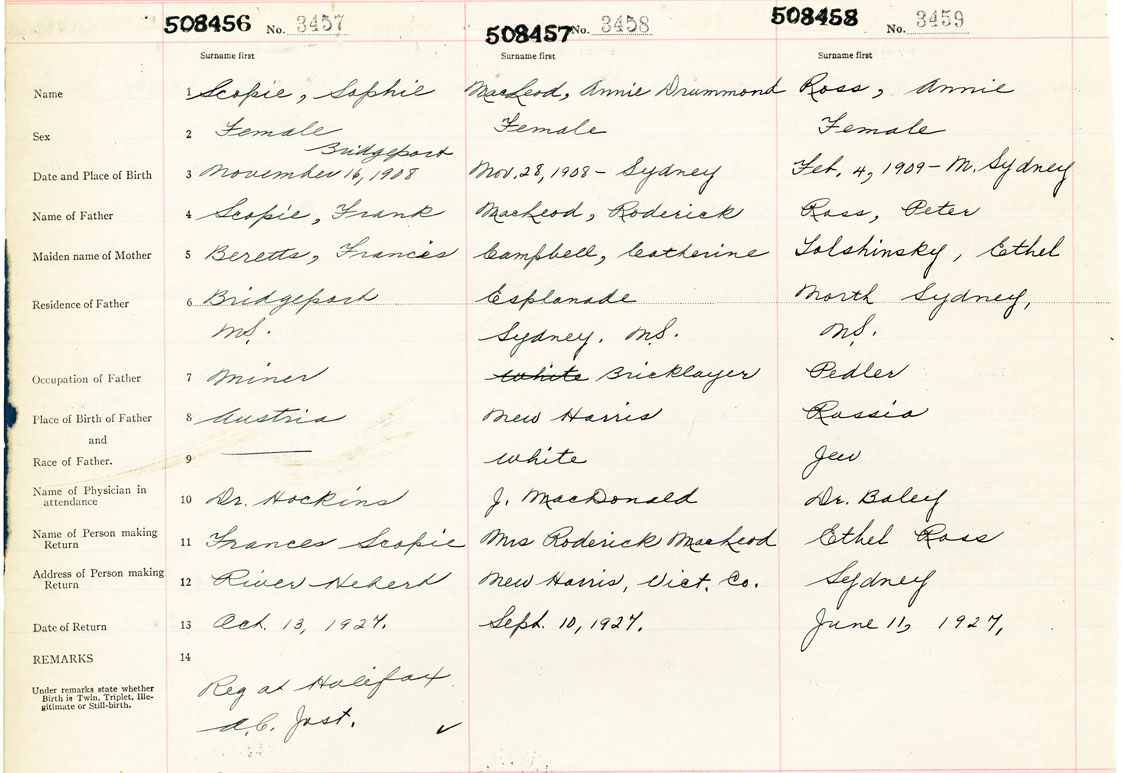 508456 No. 3457 508457 No. 3458 508458 No. 3459
Surname first Surname first Surname first
Name 1 Scopie, Sophie MacLeod, Annie Drummond Ross, Annie
Sex 2 Female Female Female
Bridgeport
Date and Place of Birth 3 November 16, 1908 Nov. 28, 1908 - Sydney Feb. 4, 1909 - N. Sydney
Name of Father 4 Scopie, Frank MacLeod, Roderick Ross, Peter
Maiden name of Mother 5 Beretts, Frances Campbell, Catherine Solshinsky, Ethel
Residence of Father 6 Bridgeport Esplanade North Sydney,
N.S. Sydney, N.S. N.S.
Occupation of Father 7 Miner White Bricklayer Pedler
Place of Birth of Father 8 Austria New Harris Russia
and
Race of Father. 9 —— White Jew
Name of Physician in
attendance 10 Dr. Hockins J. MacDonald Dr. Baley
Name of Person making
Return 11 Frances Scopie Mrs Roderick MacLeod Ethel Ross
Address of Person making
Return 12 River Hebert New Harris, Vict. Co. Sydney
Date of Return 13 Oct. 13, 1927. Sept. 10, 1927. June 11, 1927,
REMARKS 14
Under remarks state whether
Birth is Twin, Triplet, Ille-
gitimate or Still-birth.
Reg at Halifax
A.C. Jost. ✓